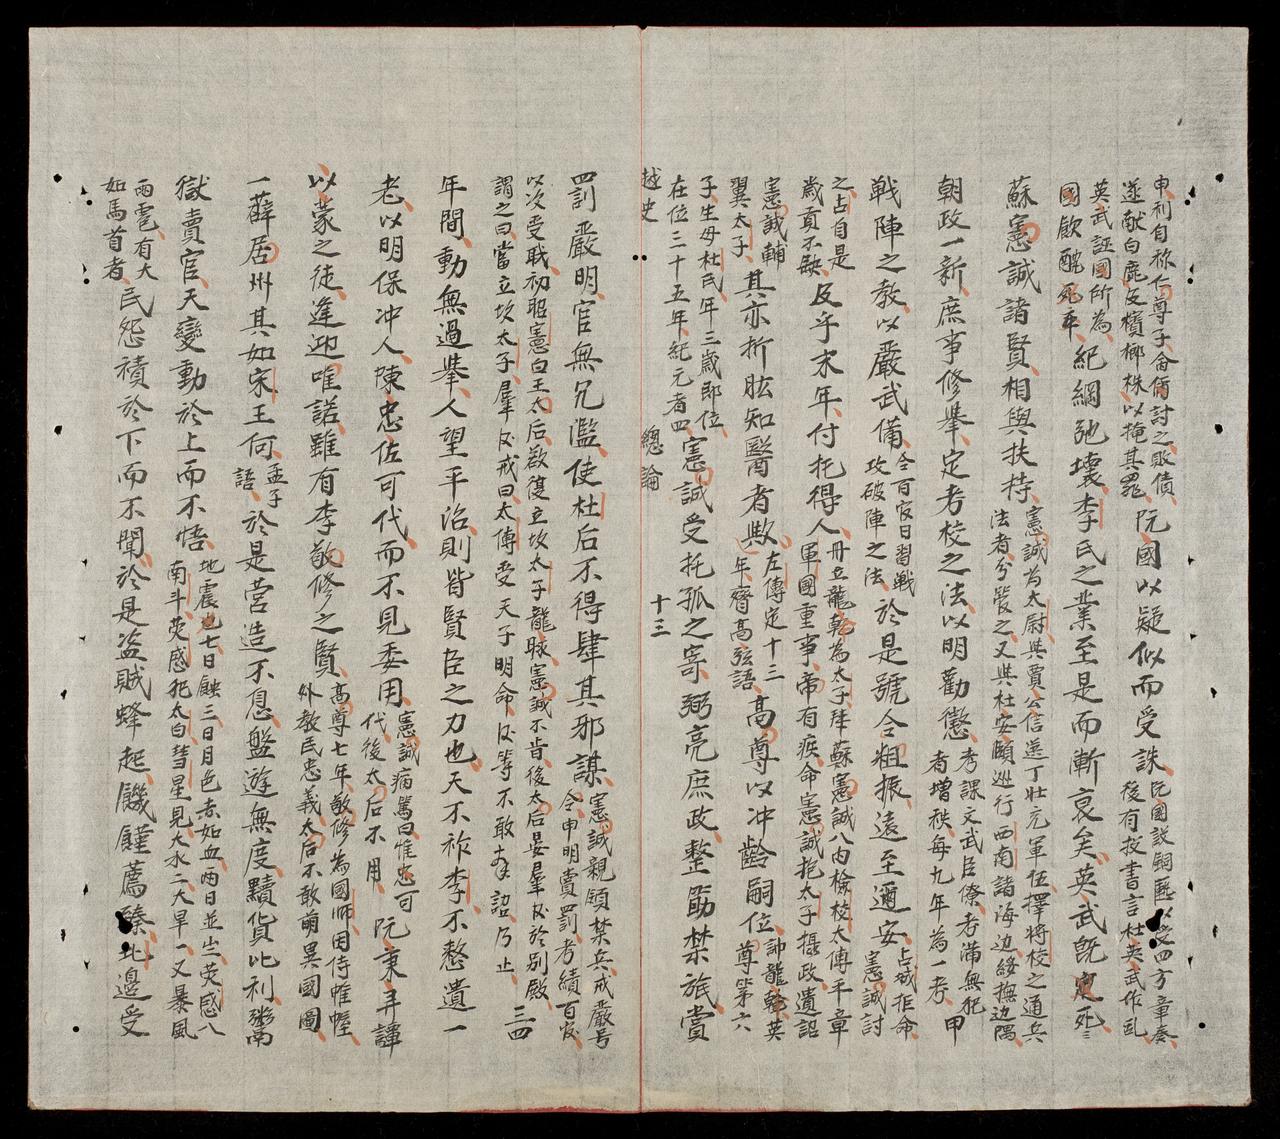 申利自称仁尊子侖偦討之敗績
遂献白鹿及檳榔株以掩其罪
阮國以疑似而受誅
阮國設銅匭以受四方章奏
後有投書言杜英武作乱
英武誣國所為
國飲醜死卒
紀綱弛壞李氏之業至是而漸衰矣英武既寔死ミ
蘇憲誠諸賢相與扶持
憲誠為太尉與賈公信選丁壮充軍伍擇將校之通兵
法者分管之又與杜安頤巡行西南諸海边綏撫边隅
朝政一新庶事修舉定考校之法以明勸懲
考課文武臣僚考滿無犯
者增秩每九年為一考
甲
戦陣之教以嚴武備
令百官日習戦
攻破陣之法
於是號令粗振遠至邇安
占城拒命
憲誠討
之占自是
歲貢不缺
及乎末年付托得人
冊立龍為太子拜蘇憲誠入内檢校太傅平章
軍國重事帝有疾命憲誠抱太子攝政遺詔
憲誠輔
翼太子
其亦折肱知醫者歟
左傳定十三
年齊高弦語
高尊以冲齡嗣位
諱龍英
尊第六
子生母杜氏年三歲即位
在位三十五年紀元者四
憲誠受托孤之寄弼亮庶政整飭禁旅賞
越史
總論
十三
四罰嚴明官無冗濫使杜后不得肆其邪謀
憲誠親領禁兵戒嚴号
令申明賞罰考績百官
以次受職初昭憲白王太后欲復立故太子龍昹憲誠不肯後太后晏羣臣於別殿
謂之曰當立故太子羣臣戒曰太傅受天子明命臣等不敢奉詔乃止
三四
年間動無過舉人望平治則皆賢臣之力也天不祚李不憗遺一
老以明保冲人陳忠佐可代而不見委用
憲誠病篤曰惟忠可
代後太后不用
阮秉弄譁
以蒙之徒逢迎唯諾雖有李敬修之賢
高尊七年敬修為國師因侍帷幄
外教民忠義太后不敢萌異國圖
一薛居州其如宋王何
孟子
語
於是营造不息盤遊無度黷貨比利粥南
獄賣官天變動於上而不悟
地震七日蝕三日月色赤如血两日並出荧惑八
南斗荧惑犯太白彗星見大水二大旱一又暴風
雨雹有大
如馬首者
民怨積於下而不聞於是盗賊蜂起饑饉薦臻北邊受